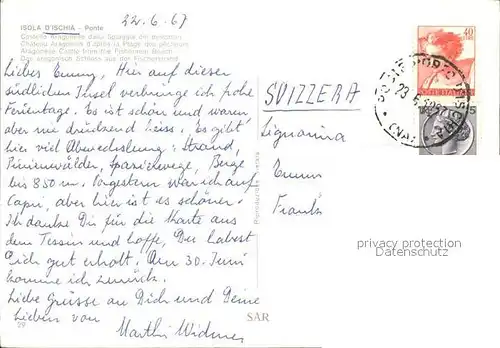 22.6.67
ISOLA D'ISCHIA - Ponte
Castello Aragonese dalla Spiaggia dei pescatori
Château Aragonais d'après la Plage des pêcheurs
Aragonese Castle from the Fishermen Beach
Das aragonisch Schloss aus der Fischerstrand
Liebes Emmy, Hier auf dieser
südlichen Insel verbringe ich frohe
Ferientage. Es ist schön und warm
aber nie drückend heiss. Es gibt
hier viel Abwechslung: Strand,
Pinienwälder, Spazierwege, Berge
bis 850 m. Vorgestern war ich auf
Capri, aber hier ist es schöner.
Ich danke Dir für die Karte aus
dem Tessin und hoffe, Du habest
Dich gut erholt. Am 30. Juni
komme ich zurück.
Liebe Grüsse an Dich und Deine
Lieben von
Marthi Widmer
29
SAR
SVIZZERA
Signorina
Emmy
Frantz
40
privacy protection
Datenschutz